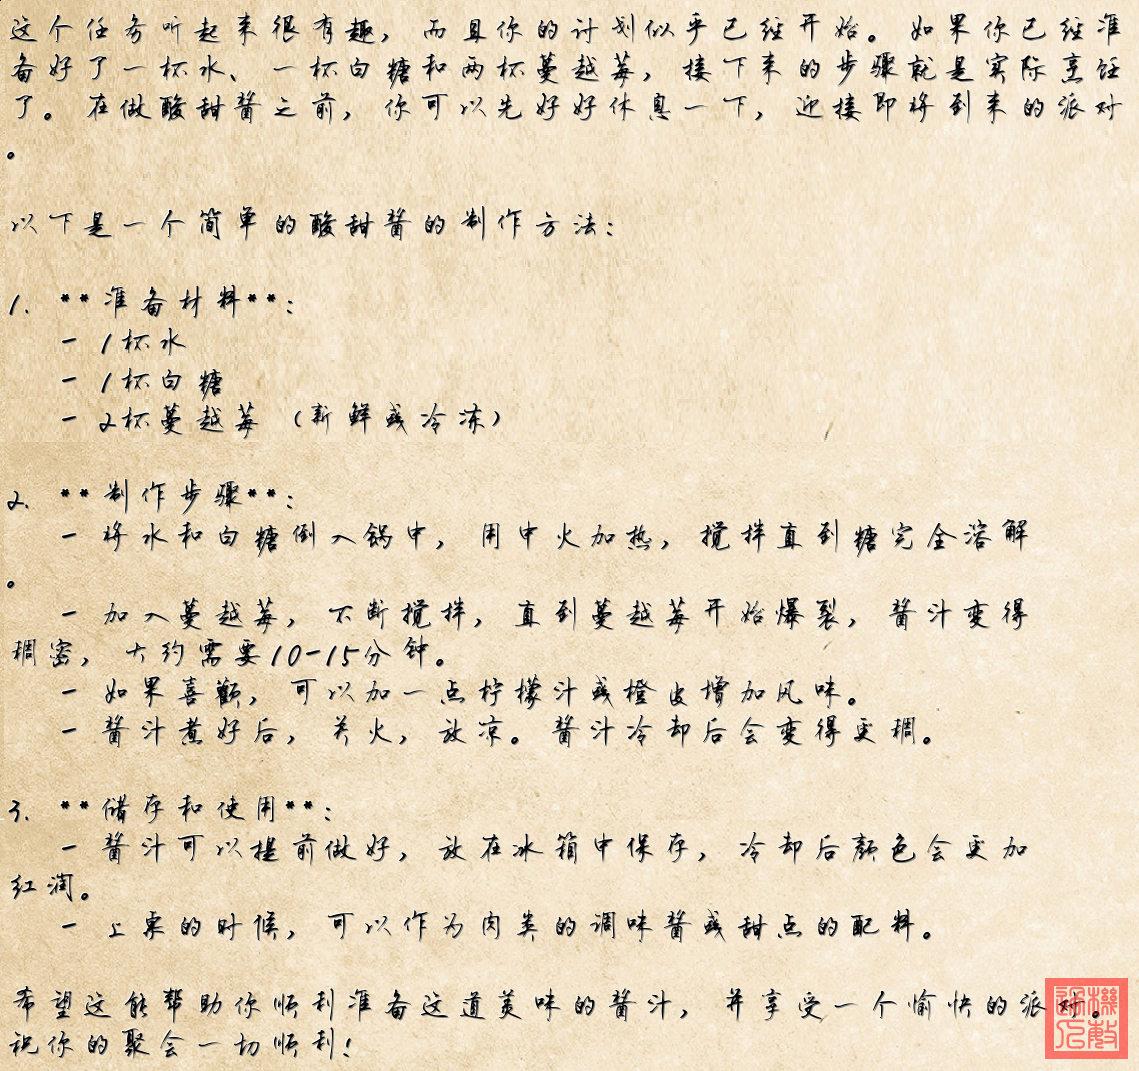 这个任务听起来很有趣，而且你的计划似乎已经开始。如果你已经准
备好了一杯水、一杯白糖和两杯蔓越莓，接下来的步骤就是实际烹饪
了。在做酸甜酱之前，你可以先好好休息一下，迎接即将到来的派对
。
以下是一个简单的酸甜酱的制作方法：
1. **准备材料**：
- 1杯水
- 1杯白糖
- 2杯蔓越莓（新鲜或冷冻）
2. **制作步骤**：
- 将水和白糖倒入锅中，用中火加热，搅拌直到糖完全溶解
。
- 加入蔓越莓，不断搅拌，直到蔓越莓开始爆裂，酱汁变得
稠密，大约需要10-15分钟。
- 如果喜欢，可以加一点柠檬汁或橙皮增加风味。
- 酱汁煮好后，关火，放凉。酱汁冷却后会变得更稠。
3. **储存和使用**：
- 酱汁可以提前做好，放在冰箱中保存，冷却后颜色会更加
红润。
- 上桌的时候，可以作为肉类的调味酱或甜点的配料。
希望这能帮助你顺利准备这道美味的酱汁，并享受一个愉快的派对。
祝你的聚会一切顺利！